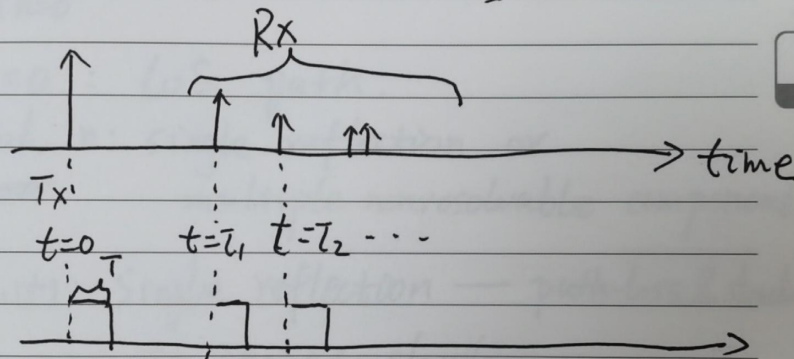 Rx
time
Tx
t=0 t=τ₁ t=τ₂ ...
T